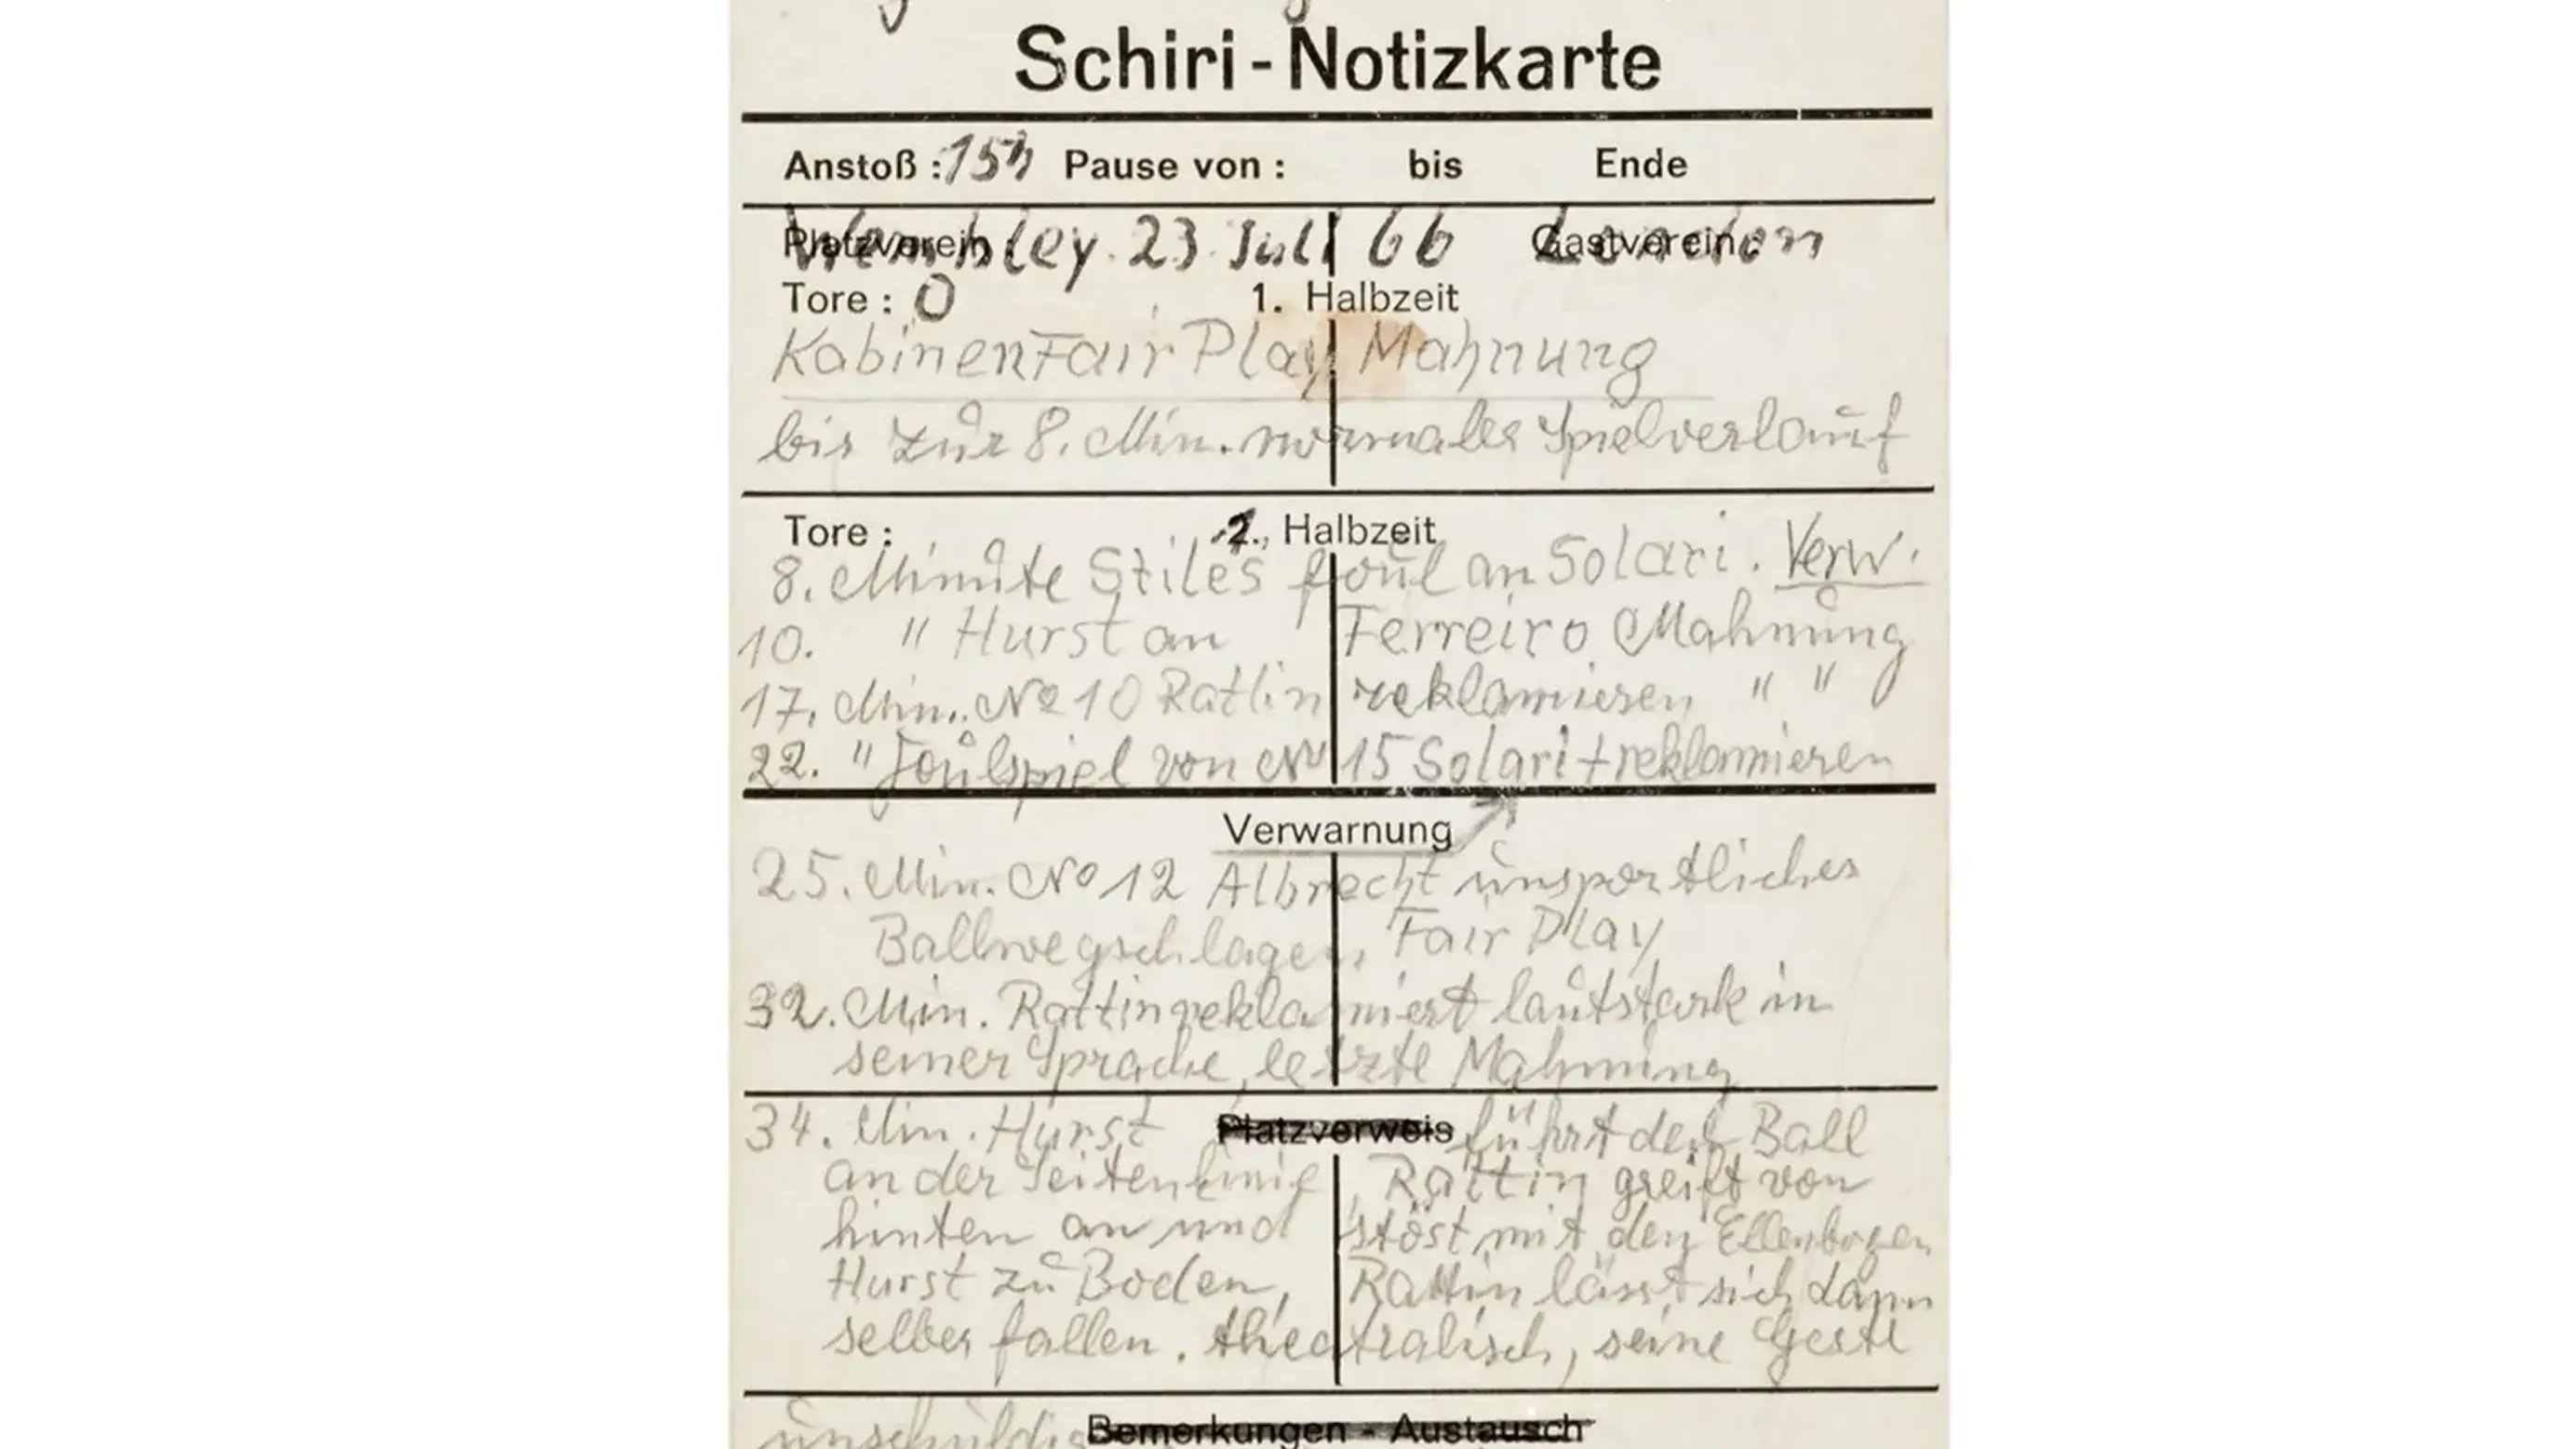 Schiri - Notizkarte
Anstoß : 15h Pause von : bis Ende
Platzverein : Gastverein :
Wembley. 23. Juli 66 London
Tore : 0 1. Halbzeit
Kabinen Fair Play Mahnung
bis zur 8. Min. normaler Spielverlauf
Tore : 2. Halbzeit
8. Minute Stiles foul an Solari. Verw.
10. " Hurst an Ferreiro Mahnung
17. Min. No 10 Rattin reklamieren " "
22. " Foulspiel von No 15 Solari + reklamieren
Verwarnung
25. Min. No 12 Albrecht unsportliches
Ballwegschlagen, Fair Play
32. Min. Rattin reklamiert lautstark in
seiner Sprache, letzte Mahnung
Platzverweis
34. Min. Hurst führt den Ball
an der Seitenlinie, Rattin greift von
hinten an und stöst mit den Ellenbogen
Hurst zu Boden, Rattin lässt sich dann
selber fallen. theatralisch, seine Geste
Bemerkungen - Austausch
unschuldig